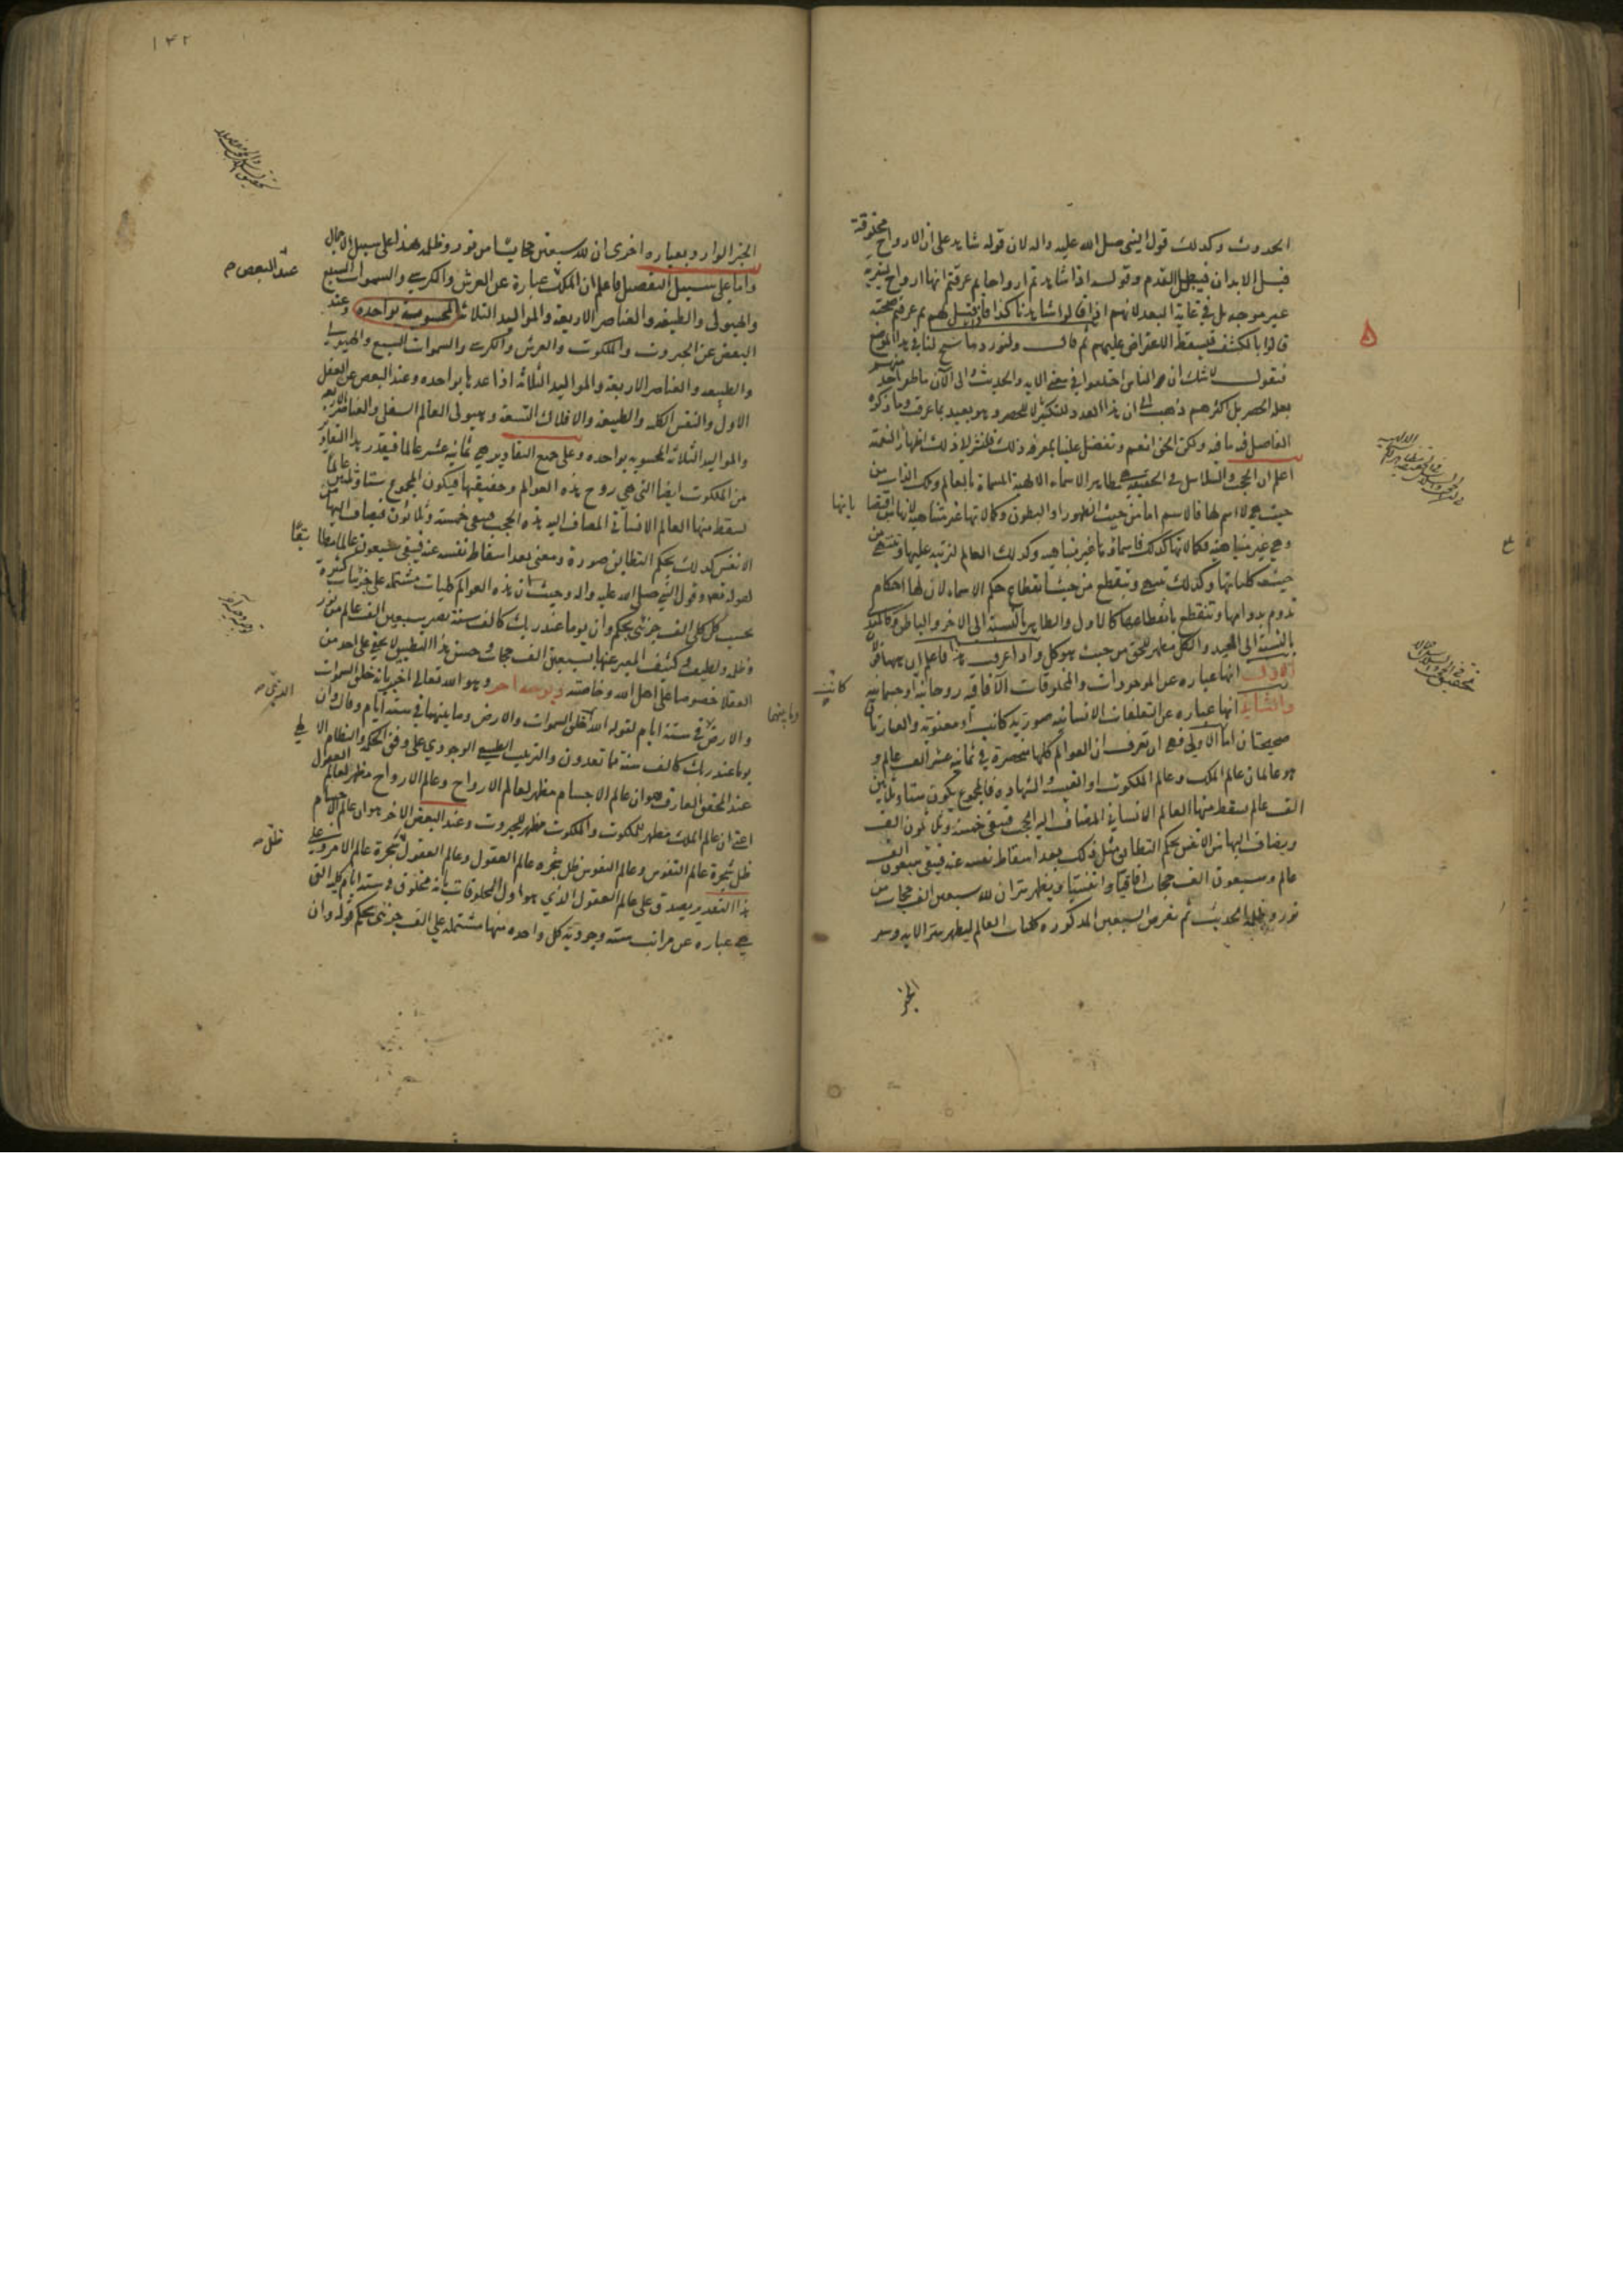 الحدوث وكذلك قول النبي صلى الله عليه واله لان قوله شاهد على ان الارواح مخلوقة
قبل الابدان فيبطل القدم وقوله اذا شاهدتم ارواحا لم عرفتم انها ارواح البشرية
غير موجه بل في غاية البعد لانهم اذا قالوا شاهدنا كذا فان قيل لهم لم عرفتم صحته
قالوا بالكشف فيسقط الاعتراض عليهم ثم قال ولنورد ما سنح لنا في هذا الموضع
فنقول لا شك ان الناس اختلفوا في معنى الاية والحديث والى الان ما ظفر احد منهم
بعلة الحصر بل اكثرهم ذهب الى ان هذا العدد للتكثير لا للحصر وهو بعيد بما عرفت وما ذكره
الفاضل فيه ما فيه ولكن الحق انعم وتفضل علينا بمعرفة ذلك فلنشر لا ذلك اظهارا لنعمته
اعلم ان الحجب والسلاسل في الحقيقة هي مظاهر الاسماء الالهية المسماة بالعالم وتلك الذات من
حيث هي لا اسم لها فالاسم اما من حيث الظهور او البطون وكمالاتها غير متناهية لانها من اقتضا
وهي غير متناهية فكمالاتها كذلك فاسماؤها غير متناهية وكذلك العالم لترتبه عليها وتنتهي من
حيث كلياتها وكذلك تنتهي وتنقطع من حيث انقطاع حكم الاسماء لان لها احكام
تدوم بدوامها وتنقطع بانقطاعها كالاول والظاهر بالنسبة الى الاخر والباطن وكالمبدئ
بالنسبة الى المعيد والكل مظهر للحق من حيث هو كل واذا عرفت هذا فاعلم ان ههنا قولان
الاول انها عبارة عن الموجودات والمخلوقات الآفاقية روحانية او جسمانية
والثاني انها عبارة عن التعلقات الانسانية صورية كانت او معنوية والعبارتان
صحيحتان اما الاولى فهي ان تعرف ان العوالم كلها منحصرة في ثمانية عشر الف عالم و
هو عالمان عالم الملك وعالم الملكوت او الغيب والشهادة فالمجموع يكون ستا وثلاثين
الف عالم يسقط منها العالم الانساني المضاف اليه الحجب فيبقى خمسة وثلاثون الف
ويضاف اليها من الانفس بحكم التطابق مثل ذلك بعد اسقاط نفسه عنه فيبقى سبعون الف
عالم وسبعون الف حجاب افاقيا وانفسيا ويظهر سر ان لله سبعين الف حجاب من
نور وظلمة الحديث ثم نفرض السبعين المذكورة كليات العالم ليظهر سر الاية وسر
الخبر
بانها
كانت
الخبر الوارد وبعبارة اخرى ان لله سبعين حجابا من نور وظلمة هذا على سبيل الاجمال
واما على سبيل التفصيل فاعلم ان الملك عبارة عن العرش والكرسي والسموات السبع
والهيولى والطبيعة والعناصر الاربعة والمواليد الثلاثة المحسوبة بواحدة وعند
البعض عن الجبروت والملكوت والعرش والكرسي والسموات السبع والهيولى
والطبيعة والعناصر الاربعة والمواليد الثلاثة اذا عدها بواحدة وعند البعض عن العقل
الاول والنفس الكلية والطبيعة والافلاك التسعة وهيولى العالم السفلي والعناصر الاربعة
والمواليد الثلاثة المحسوبة بواحدة وعلى جميع التقادير هي ثمانية عشر عالما فيقدر بهذا المقدار
من الملكوت ايضا التي هي روح هذه العوالم وحقيقتها فيكون المجموع ستا وثلثين عالما
تسقط منها العالم الانساني المضاف اليه هذه الحجب فيبقى خمسة وثلاثون فيضاف اليها من
الانفس كذلك بحكم التطابق صورة ومعنى بعد اسقاط نفسه عنه فيبقى سبعون عالما مطابقا
لقوله تعالى وقول النبي صلى الله عليه واله وحيث ان هذه العوالم كليات مشتملة على جزئيات كثيرة
بحسب كل كلي الف جزئي بحكم وان يوما عند ربك كالف سنة يصير سبعين الف عالم من نور
وظلمة ولطيف وكثيف المعبر عنها بسبعين الف حجاب حسن هذا التطبيق لا يخفى على احد من
العقلا خصوصا على اهل الله وخاصته وبوجه اخر وهو الله تعالى اخبر بانه خلق السموات
والارض في ستة ايام لقوله الله خلق السموات والارض وما بينهما في ستة ايام وقال وان
يوما عند ربك كالف سنة مما تعدون والترتيب الطبيعي الوجودي على وفق الحكمة والنظام الالهي
عند المحقق العارف هو ان عالم الاجسام مظهر لعالم الارواح وعالم الارواح مظهر لعالم العقول
اعني ان عالم الملك مظهر للملكوت والملكوت مظهر للجبروت وعند البعض الاخر هو ان عالم الاجسام
ظل شجرة عالم النفوس وعالم النفوس ظل شجرة عالم العقول وعالم العقول شجرة عالم الامر وعلى
هذا التقدير يصدق على عالم العقول الذي هو اول المخلوقات بانه مخلوق في ستة ايام كلية التي
هي عبارة عن مراتب ستة وجودية كل واحدة منها مشتملة على الف جزئي بحكم قوله وان
عند البعض م
وما بينهما
ظل
١٤٢